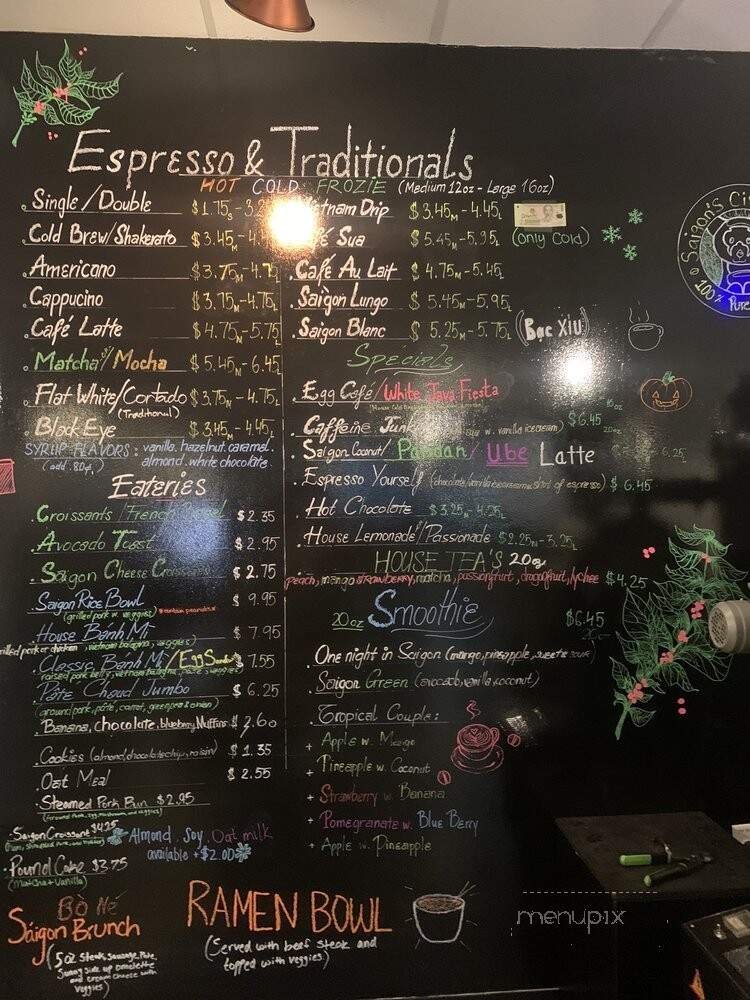 Espresso & Traditionals
HOT COLD FROZIE (Medium 12oz - Large 16oz)
Single/Double $1.75s - 3.2
Cold Brew/Shakerato $3.45M - 4.
Americano $3.75M - 4.75L
Cappucino $3.75M - 4.75L
Café Latte $4.75M - 5.75L
Matcha or Mocha $5.45M - 6.45L
Flat White/Cortado $3.75M - 4.75L
(Traditional)
Black Eye $3.45M - 4.45L
SYRUP FLAVORS: vanilla. hazelnut. caramel.
(add .80¢) almond. white chocolate
Eateries
Croissants / French $2.35
Avocado Toast $2.95
Saigon Cheese Croissants $2.75
Saigon Rice Bowl $9.95
(grilled pork w. veggies) *contain peanuts*
House Banh Mi $7.95
grilled pork or chicken, vietnam bologna, veggies)
Classic Banh Mi / Egg $7.55
raised pork belly, vietnam bologna, pate, veggies)
Pâte Chaud Jumbo $6.25
(ground pork, pâte, carrot, green pea & onion)
Banana, chocolate, blueberry Muffins $2.60
Cookies (almond, chocolate chip, raisin) $1.35
Oat Meal $2.55
Steamed Pork Bun $2.95
(Ground Pork, Egg, mushroom, and veggies)
Saigon Croissant $4.25
Pound Cake $3.75
(Matcha + Vanilla)
Almond. Soy. Oat milk
available + $2.00
Bò Né
Sáigon Brunch
(5oz Steak, Sausage, Pate,
Sunny side up omelette
and cream cheese with
veggies)
RAMEN BOWL
(Served with beef steak and
topped with veggies)
Vietnam Drip $3.45M - 4.45L
Café Sua $5.45M - 5.95L (only cold)
Café Au Lait $4.75M - 5.45L
Saigon Lungo $5.45M - 5.95L
Saigon Blanc $5.25M - 5.75L (Bạc Xỉu)
Specials
Egg Café/White Java Fiesta
Caffeine Junk w. vanilla icecream) $6.45
Saigon Coconut/Pandan/Ube Latte
Espresso Yourself (chocolate/vanilla icecream & shot of espresso) $6.45
Hot Chocolate $3.25M - 4.25L
House Lemonade/Passionade $2.25M - 3.25L
HOUSE TEA'S 20oz
peach, mango strawberry, matcha, passionfruit, dragonfruit, lychee $4.25
20oz Smoothie $6.45
One night in Saigon (mango, pineapple, sweet & sour)
Saigon Green (avocado, vanilla, coconut)
Tropical Couple:
+ Apple w. Mango
+ Pineapple w. Coconut
+ Strawberry w. Banana
+ Pomegranate w. Blue Berry
+ Apple w. Pineapple
Saigon's
100% Pure
menupix